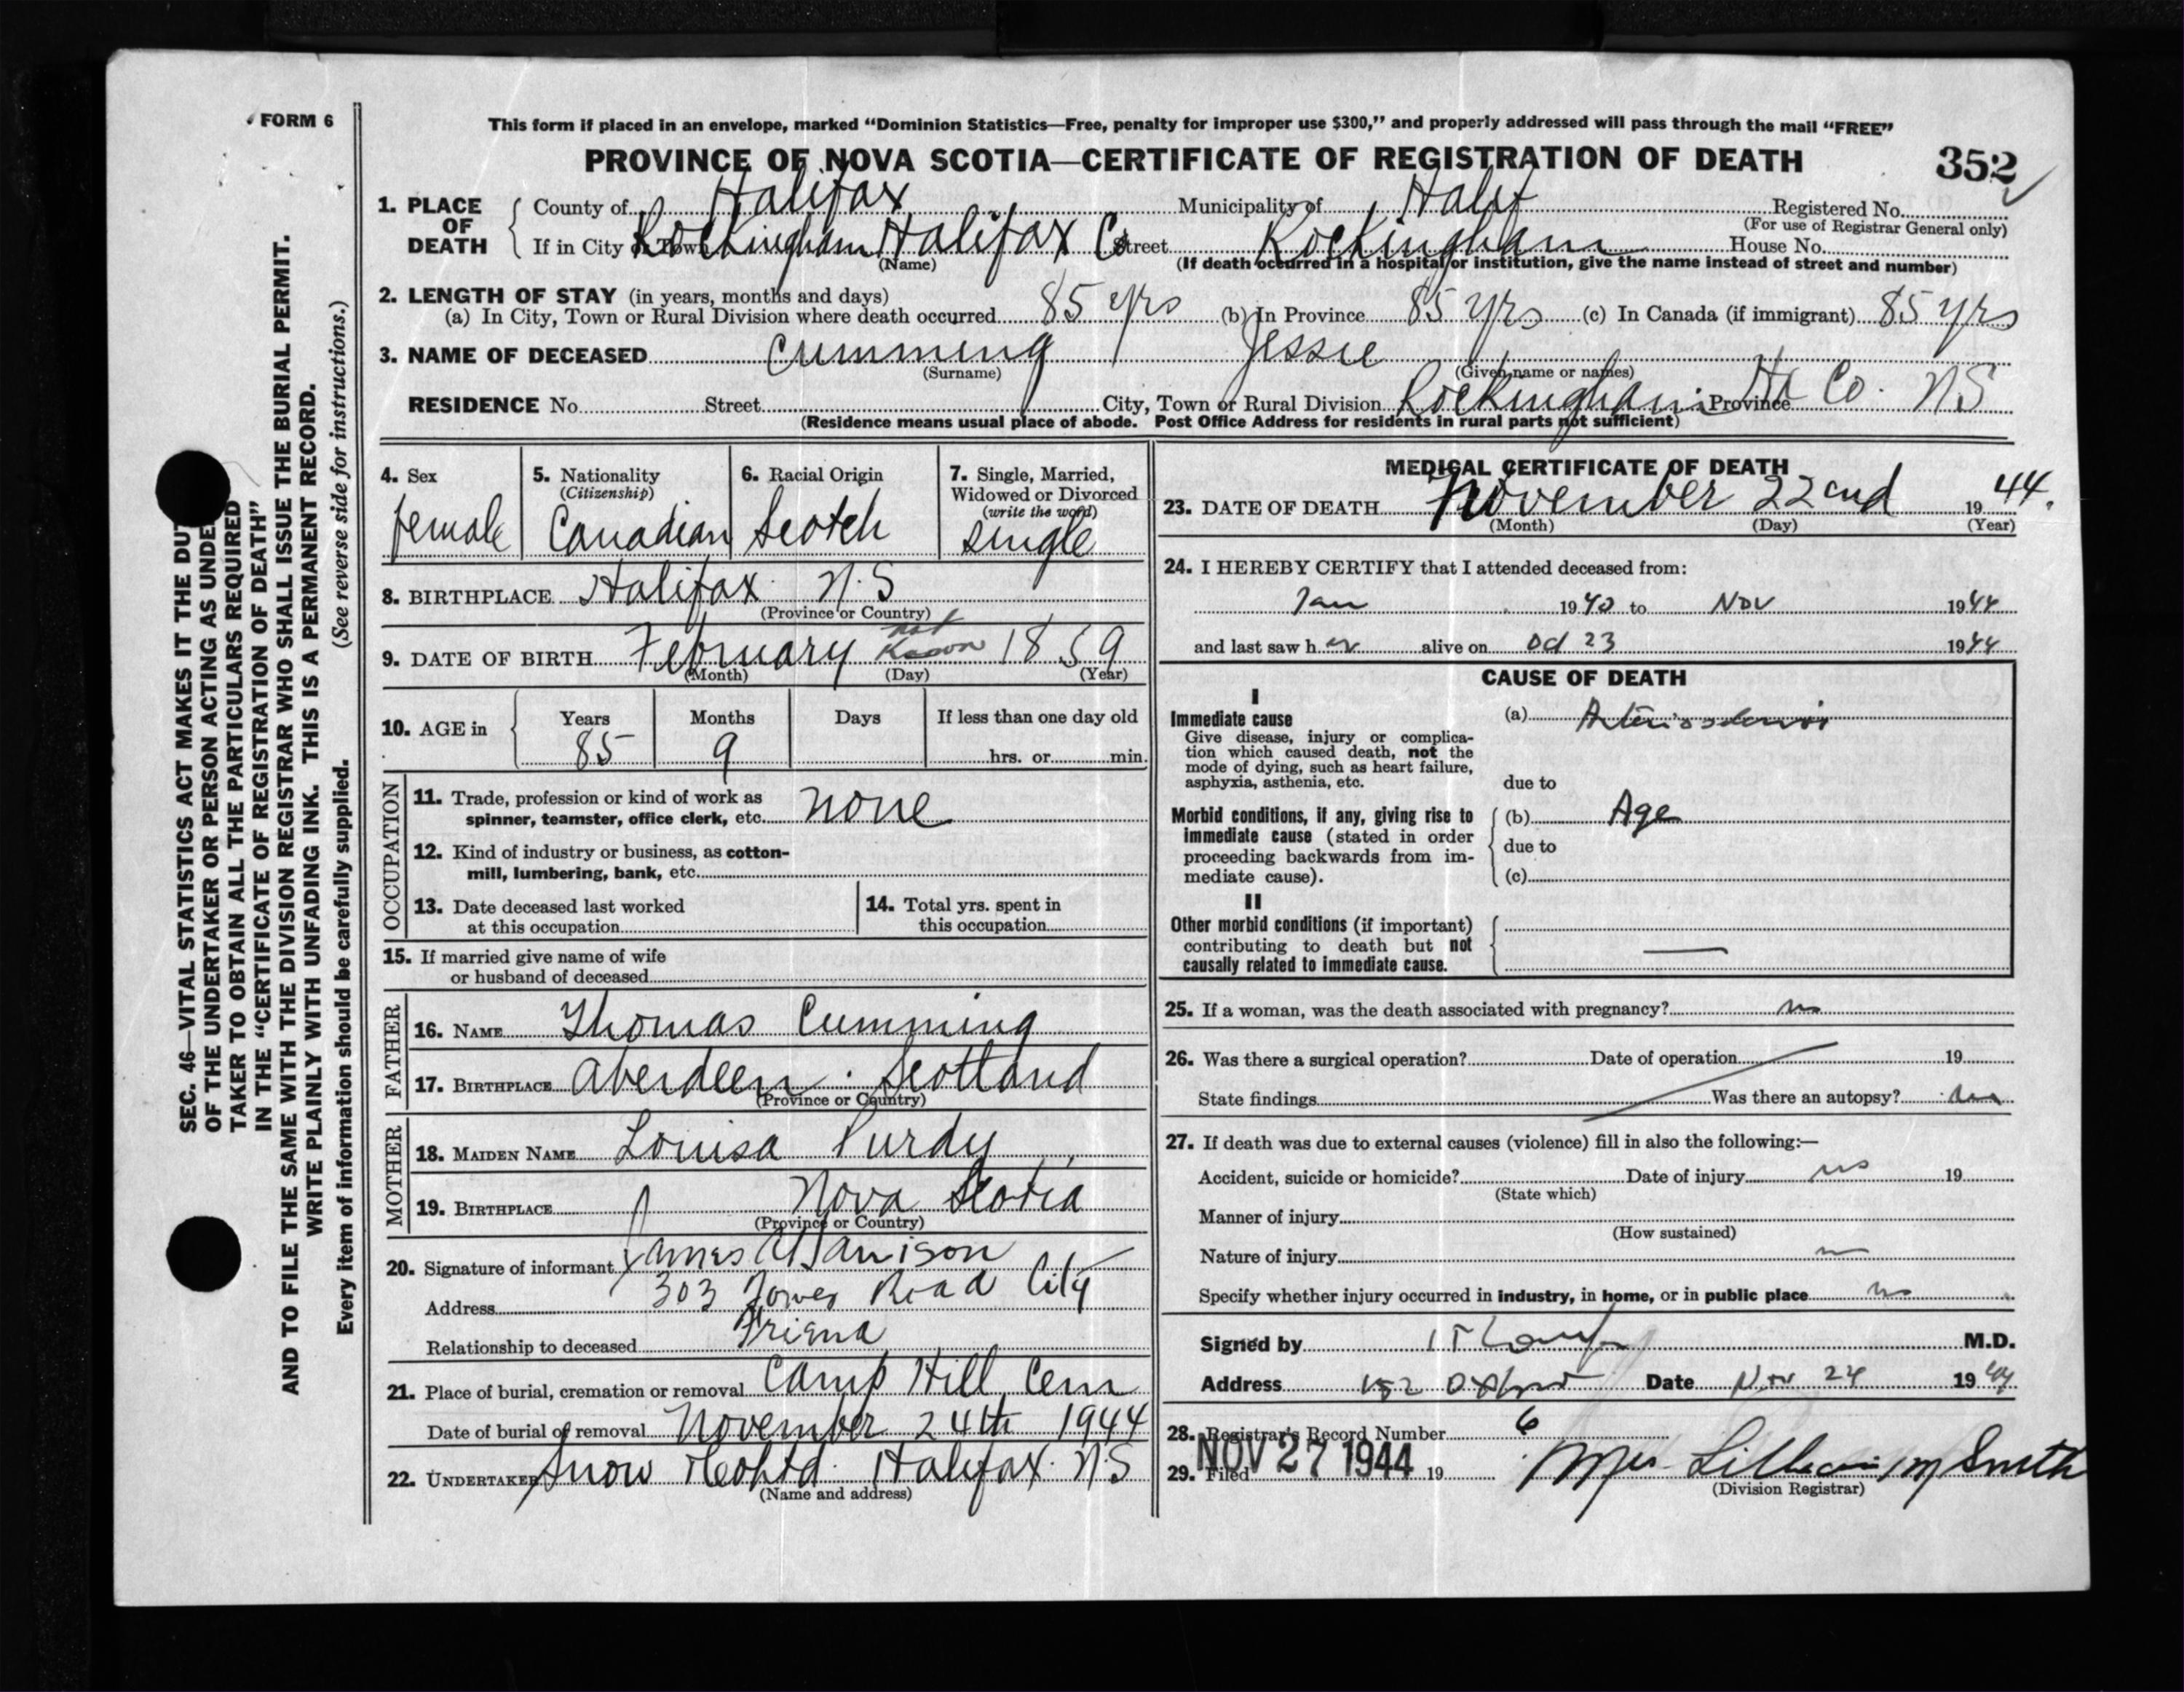 FORM 6
This form if placed in an envelope, marked "Dominion Statistics—Free, penalty for improper use $300," and properly addressed will pass through the mail "FREE"
PROVINCE OF NOVA SCOTIA—CERTIFICATE OF REGISTRATION OF DEATH
352
1. PLACE OF DEATH
County of Halifax Municipality of Halif Registered No.
(For use of Registrar General only)
If in City or Town Rockingham Halifax Co Street Rockingham House No.
(Name) (If death occurred in a hospital or institution, give the name instead of street and number)
2. LENGTH OF STAY (in years, months and days)
(a) In City, Town or Rural Division where death occurred 85 yrs (b) In Province 85 yrs (c) In Canada (if immigrant) 85 yrs
3. NAME OF DECEASED Cumming Jessie
(Surname) (Given name or names)
RESIDENCE No. Street City, Town or Rural Division Rockingham Province Hx Co. N S
(Residence means usual place of abode. Post Office Address for residents in rural parts not sufficient)
4. Sex
female
5. Nationality
(Citizenship)
Canadian
6. Racial Origin
Scotch
7. Single, Married,
Widowed or Divorced
(write the word)
single
8. BIRTHPLACE Halifax N.S
(Province or Country)
9. DATE OF BIRTH February not Known 1859
(Month) (Day) (Year)
10. AGE in
Years Months Days If less than one day old
85 9 hrs. or min.
OCCUPATION
11. Trade, profession or kind of work as
spinner, teamster, office clerk, etc. none
12. Kind of industry or business, as cotton-
mill, lumbering, bank, etc.
13. Date deceased last worked
at this occupation
14. Total yrs. spent in
this occupation
15. If married give name of wife
or husband of deceased
FATHER
16. NAME Thomas Cumming
17. BIRTHPLACE Aberdeen. Scotland
(Province or Country)
MOTHER
18. MAIDEN NAME Louisa Purdy
19. BIRTHPLACE Nova Scotia
(Province or Country)
20. Signature of informant James
Address 303 Tower Road City
Relationship to deceased Friend
21. Place of burial, cremation or removal Camp Hill Cem
Date of burial of removal November 24th 1944
22. UNDERTAKER Snow & Co Ltd. Halifax. N S
(Name and address)
MEDICAL CERTIFICATE OF DEATH
23. DATE OF DEATH November 22nd 1944.
(Month) (Day) (Year)
24. I HEREBY CERTIFY that I attended deceased from:
Jan 1940 to Nov 1944
and last saw her alive on Oct 23 1944
CAUSE OF DEATH
I
Immediate cause
Give disease, injury or complica-
tion which caused death, not the
mode of dying, such as heart failure,
asphyxia, asthenia, etc.
(a) Arteriosclerosis
due to
Morbid conditions, if any, giving rise to
immediate cause (stated in order
proceeding backwards from im-
mediate cause).
(b) Age
due to
(c)
II
Other morbid conditions (if important)
contributing to death but not
causally related to immediate cause.
25. If a woman, was the death associated with pregnancy? no
26. Was there a surgical operation? Date of operation 19
State findings Was there an autopsy? no
27. If death was due to external causes (violence) fill in also the following:—
Accident, suicide or homicide? Date of injury no 19
(State which)
Manner of injury
(How sustained)
Nature of injury
Specify whether injury occurred in industry, in home, or in public place no
Signed by M.D.
Address Oxford Date Nov 24 1944
28. Registrar's Record Number 6
29. Filed NOV 27 1944 19 Mrs Lillian M Smith
(Division Registrar)
SEC. 46—VITAL STATISTICS ACT MAKES IT THE DUT
OF THE UNDERTAKER OR PERSON ACTING AS UNDER
TAKER TO OBTAIN ALL THE PARTICULARS REQUIRED
IN THE "CERTIFICATE OF REGISTRATION OF DEATH"
AND TO FILE THE SAME WITH THE DIVISION REGISTRAR WHO SHALL ISSUE THE BURIAL PERMIT.
WRITE PLAINLY WITH UNFADING INK. THIS IS A PERMANENT RECORD.
Every item of information should be carefully supplied. (See reverse side for instructions.)